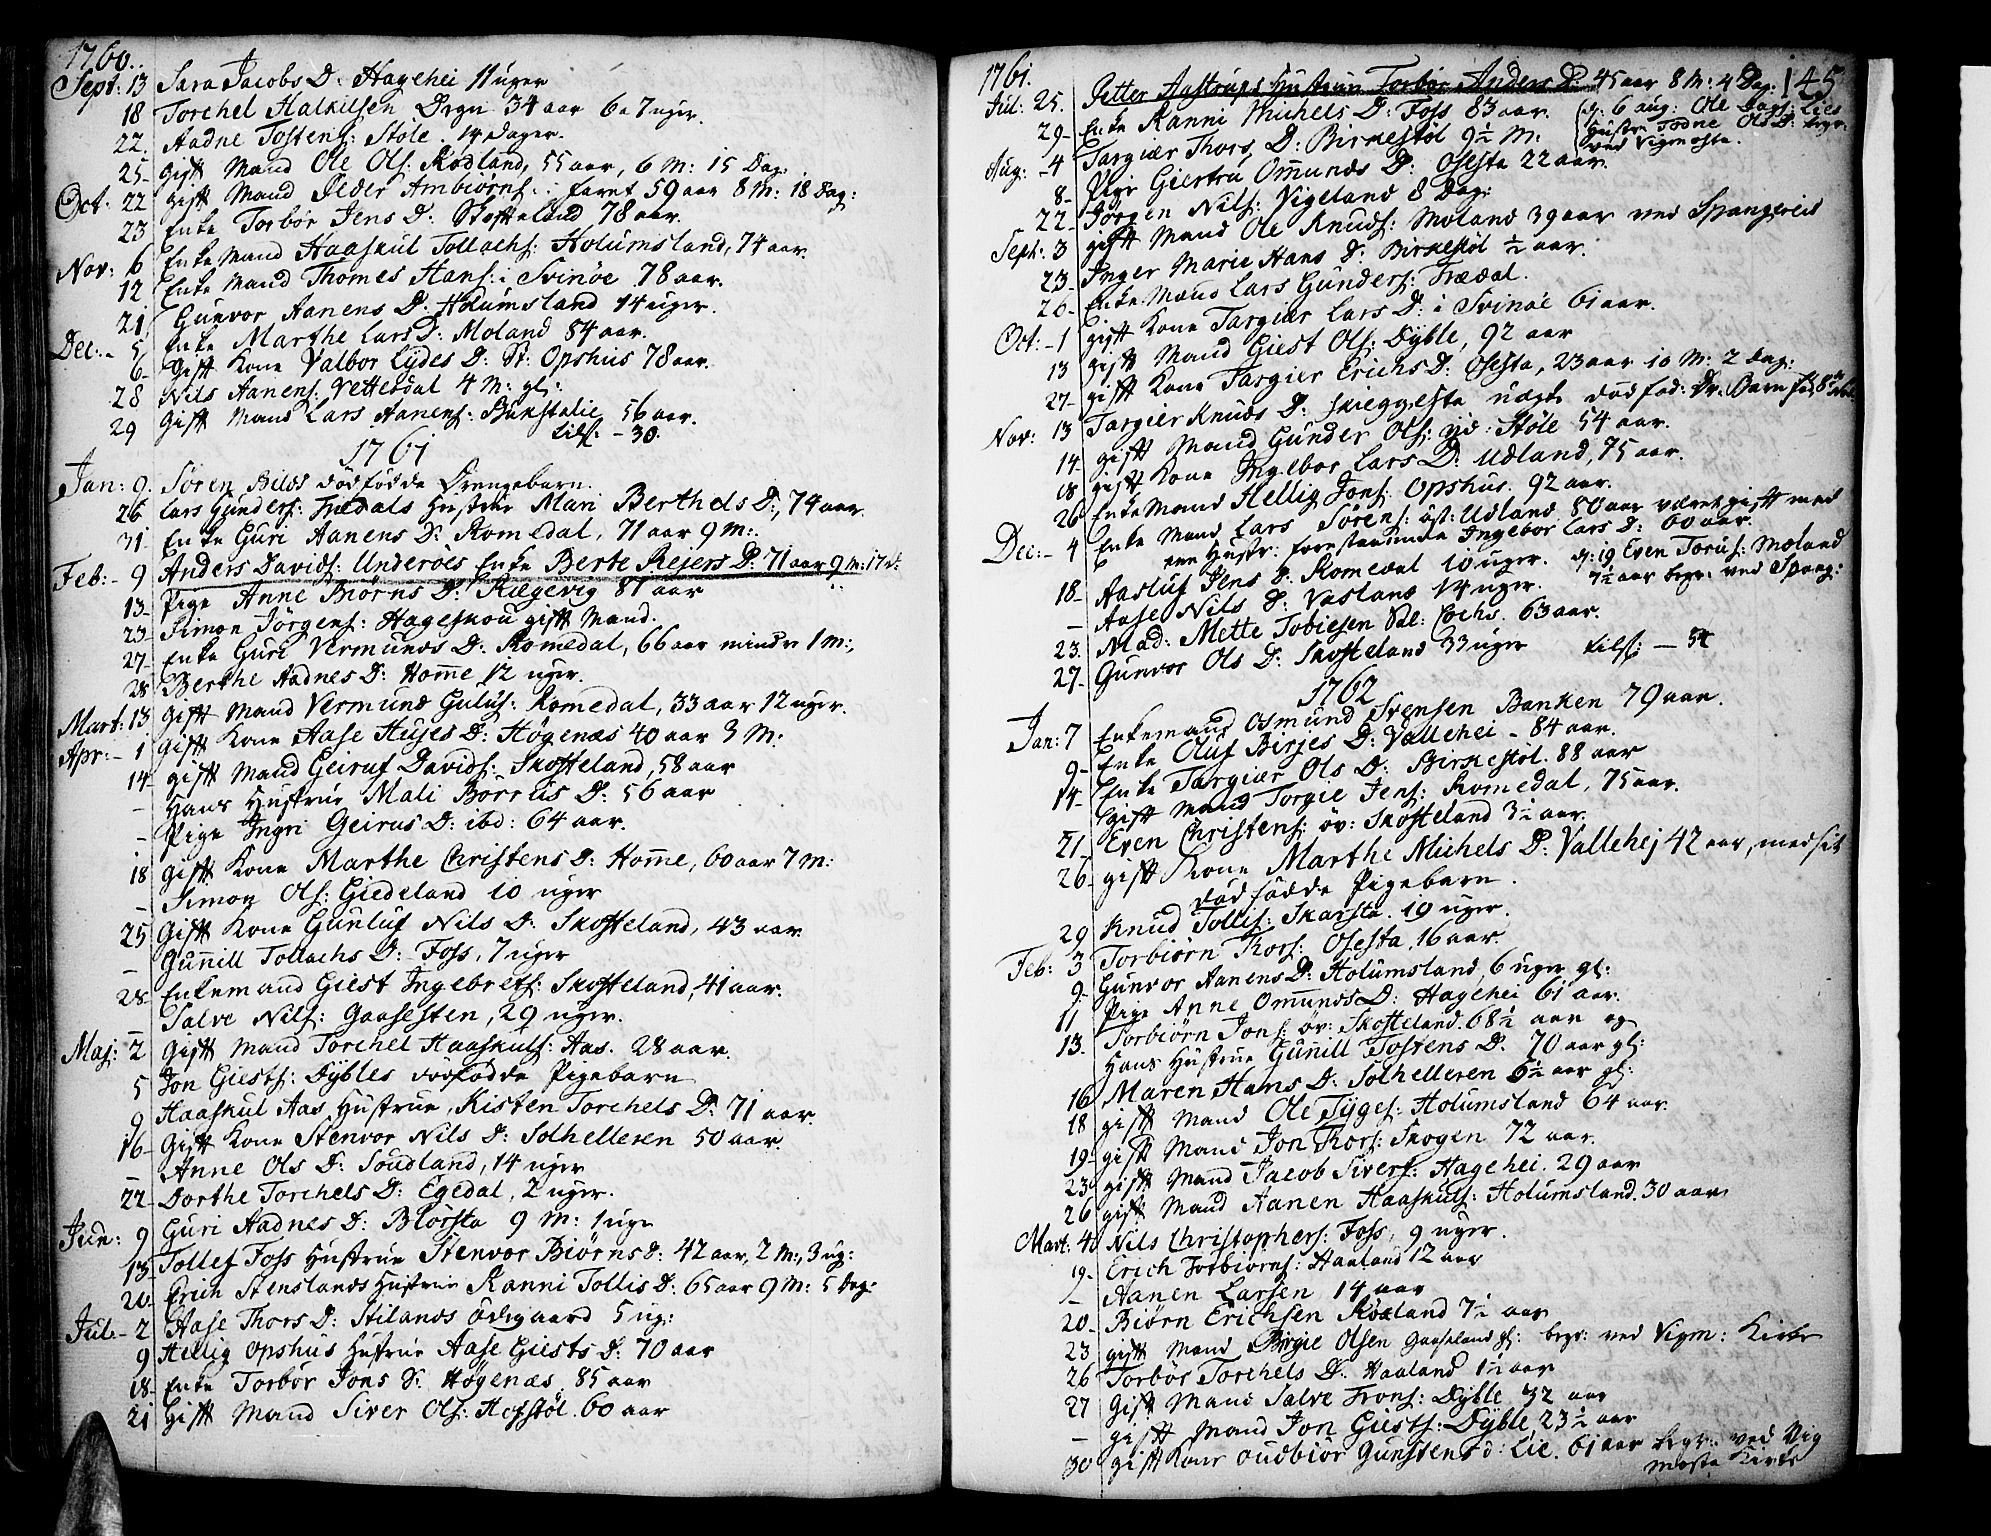 1760.
Sept: 13 Sara Jacobs D: Hagehei 11 uger
18 Torchel Halkilsen Drgn 34 aar 6 a 7 uger.
22. Aadne Tostens: Støle. 14 dager.
25- gift Mand Ole Ols: Rødland, 55 aar, 6 M: 15 Dag:
Oct: 22 gift Mand Peder Ambiørns: i faret 59 aar 8 M: 18 Dag:
23 Enke Torbør Jens D: Skofteland 78 aar.
Nov: 6 Enke Mand Haaskul Tollachs: Holumsland, 74 aar.
12 Enke Mand Thomes Hans: i Svinøe 78 aar.
21 Gunvor Aanens D: Holumsland 14 uger.
Dec: - 5 Enke Marthe Lars D: Moland 84 aar.
6- Gift Kone Valbor Lydes D: St: Opshus 78 aar.
28 Nils Aanens: Vettesdal 4 M: gl:
29 Gift Mand Lars Aanens: Bukstalie 56 aar.
tils: - 30.
1761
Jan: 9. Søren Bilds dødfødde Drengebarn.
26 Lars Gunders: Trædals Hustrue Mari Berthels D:, 74 aar.
31 Enke Guri Aanens D: Romedal, 71 aar 9 M:
Feb: - 9 Anders Davids: Underøes Enke Berte Reiers D: 71 aar 9 M: 17 d:
13- Pige Anne Biørns D: Rægevig 81 aar
23- Simon Jørgens: Hageskou gift Mand.
27- Enke Guri Vermunds D: Romedal, 66 aar mindre 1 M:,
28 Berthe Aadnes D: Home 12 uger.
Mart: 13 gift Mand Vermund Gulufs: Romedal, 33 aar 12 uger.
Apr: - 1 gift Kone Aase Hujes D: Høgenæs 40 aar 3 M:
14- gift Mand Geiruf Davids: Skofteland, 58 aar
- Hans Hustrue Mali Børrus D: 56 aar
- Pige Ingri Geirus D: ibd: 64 aar.
18 gift Kone Marthe Christens D: Home, 60 aar 7 M:
- Simon Ols: Giedeland 10 uger
25 Gift Kone Gunluf Nils D: Skofteland, 43 aar.
- Gunill Tollachs D: Foss, 7 uger
28- Enkemand Giest Ingebrets: Skofteland, 41 aar.
- Salve Nils: Gaasesten, 29 uger.
Maj: 2 Gift Mand Torchel Haaskuls: Aas. 28 aar.
5 Jon Giests: Dybles dødfødde Pigebarn
9 Haaskul Aas Hustrue, Kisten Torchels D: 71 aar.
16- Gift Kone Stenvor Nils D: Solhelleren 50 aar.
- Anne Ols D: Soudland, 14 uger
22 Dorthe Torchels D: Egedal, 2 uger.
Jun: 9 Guri Aadnes D: Blørsta 9 M: 1 uge
13- Tollef Foss Hustrue Stenvor Biørns D: 42 aar, 2 M:, 3 ug:
20- Erich Stenslands Hustrue Ranni Tollis D: 65 aar 9 M: 5 Dag:
Jul: - 2 Aase Thors D: Stilands ødegaard 5 ug:
9 Hellig Opshus Hustrue Aase Giests D: 70 aar
18- Enke Torbør Jons D: Høgenæs 85 aar
21 gift Mand Siver Ols: Hofstøl. 60 aar
1761. 145
Jul: 25. Petter Aastrups Hustrue Torbør Anders D: 45 aar 8 M: 4 Dag:
29- Enke Ranni Michels D: Foss 83 aar. (d: 6 aug: Ole Dags: Lies
Hustr: Todne Ols D: begr:
ved Vigmosta.
Aug: - 4 Targier Thors D: Birkestøl 9½ M:
8- Pige Giertru Omunds D: Osesta 22 aar.
22- Jørgen Nils: Vigeland 8 Dag:
Sept: 3 gift Mand Ole Knuds: Moland 39 aar ved Spangereid
23- Inger Marie Hans D: Birkestøl ½ aar.
26- Enke Mand Lars Gunders: Trædal.
Oct: - 1 gift Kone Targier Lars D: i Svinøe 61 aar.
13 gift Mand Giest Ols: Dyble, 92 aar
27- gift Kone Targier Erichs D: Osesta, 23 aar 10 M: 2 Dag:
Nov: 13 Targier Knuds D: Skeggesta
14 gift Mand Gunder Ols: Støle 54 aar.
18 gift Kone Ingebor Lars D: Udland, 75 aar.
26 Enke Mand Hellig Jons: Opshus. 92 aar.
Dec: - 4 Enke Mand Lars Sørens: øst: Udland 80 aar været gift med
Hustr: forestaaende Ingebor Lars D: 60 aar.
18- Aasluf Jens D: Romedal 10 uger. d: 19 Even Torius: Moland
7½ aar begr: ved Spang:
- Aase Nils D: Vasland 14 uger.
23. Mad: Mette Tobiesen Sal: Cochs. 63 aar.
27- Gunvor Ols D: Skofteland 33 uger tils: - 54
1762
Jan: 7 Enkemand Osmund Svensen Banken 79 aar.
9- Enke Oluf Birjes D: Vallehei - 84 aar.
14- Enke Targier Ols D: Birkestøl. 88 aar
Gift Mand Torgie Jens: Romedal, 75 aar.
21- Even Christens: øv: Skofteland 3½ aar.
26- gift Kone Marthe Michels D: Vallehej 42 aar, med sit
død fødde Pigebarn.
29 Knud Tollis: Skarsta. 19 uger.
Feb: 3 Torbiørn Thors: Osesta, 16 aar.
9- Gunvor Aanens D: Holumsland, 6 uger gl:
11 Pige Anne Omunds D: Hagehei 61 aar.
13. Torbiørn Jons: øv: Skofteland. 68½ aar og
Hans Hustrue Gunill Tostens D: 70 aar gl:
16 Maren Hans D: Solhelleren 6½ aar gl:
18 gift Mand Ole Tyges: Holumsland 64 aar.
19- gift Mand Jon Thors: Skogen 72 aar.
23 gift Mand Jacob Sivers: Hagehei. 29 aar
26 gift Mand Aanen Haaskuls: Holumsland. 30 aar
Mart: 4 Nils Christophers: Foss, 9 uger.
19- Erich Torbiørns: Haaland 12 aar
- Aanen Larsen 14 aar
20- Biørn Erichsen Roeland 7½ aar
23 gift Mand Birgie Olsen Gaaseland gl: begr: ved Vigm: Kirke
26 Torbør Torchels D: Haaland 1½ aar
27 Gift Mand Salve Trons: Dyble 32 aar
- gift Mand Jon Giests: Dyble 23½ aar
30 gift Kone Oudbiør Gunstens D: Lie. 61 aar begr: ved Vig
mosta Kirke